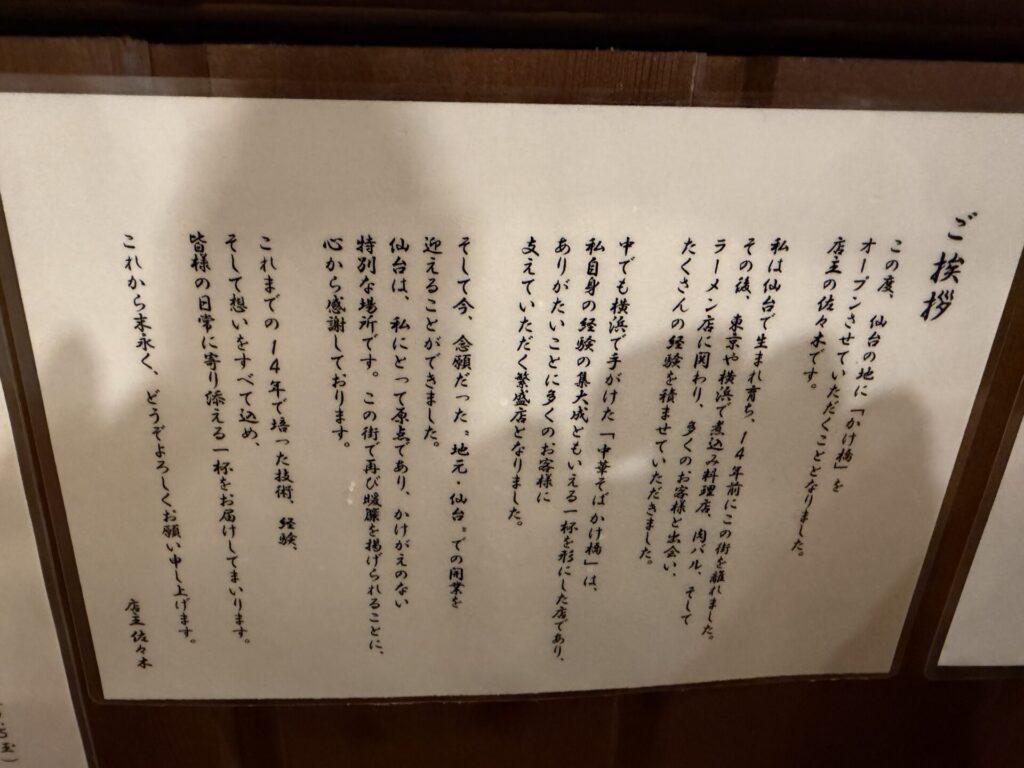 ご挨拶
この度、仙台の地に「かけ橋」を
オープンさせていただくこととなりました。
店主の佐々木です。
私は仙台で生まれ育ち、14年前にこの街を離れました。
その後、東京や横浜で煮込み料理店、肉バル、そして
ラーメン店に関わり、多くのお客様と出会い、
たくさんの経験を積ませていただきました。
中でも横浜で手がけた「中華そばかけ橋」は、
私自身の経験の集大成ともいえる一杯を形にした店であり、
ありがたいことに多くのお客様に
支えていただく繁盛店となりました。
そして今、念願だった〝地元・仙台〟での開業を
迎えることができました。
仙台は、私にとって原点であり、かけがえのない
特別な場所です。この街で再び暖簾を掲げられることに、
心から感謝しております。
これまでの14年で培った技術、経験、
そして想いをすべて込め、
皆様の日常に寄り添える一杯をお届けしてまいります。
これから末永く、どうぞよろしくお願い申し上げます。
店主 佐々木